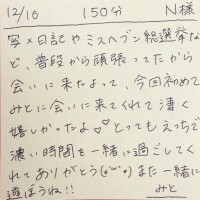 12/10 150分 N様
写メ日記やミスヘブン総選挙な
ど、普段から頑張ってたから
会いに来たよって、今回初めて
みとに会いに来てくれて凄く
嬉しかったよ♡♡とってもえっちで
濃い時間を一緒に過ごしてく
れてありがとう(*´꒳`*) また一緒に
遊ぼうね!! みと